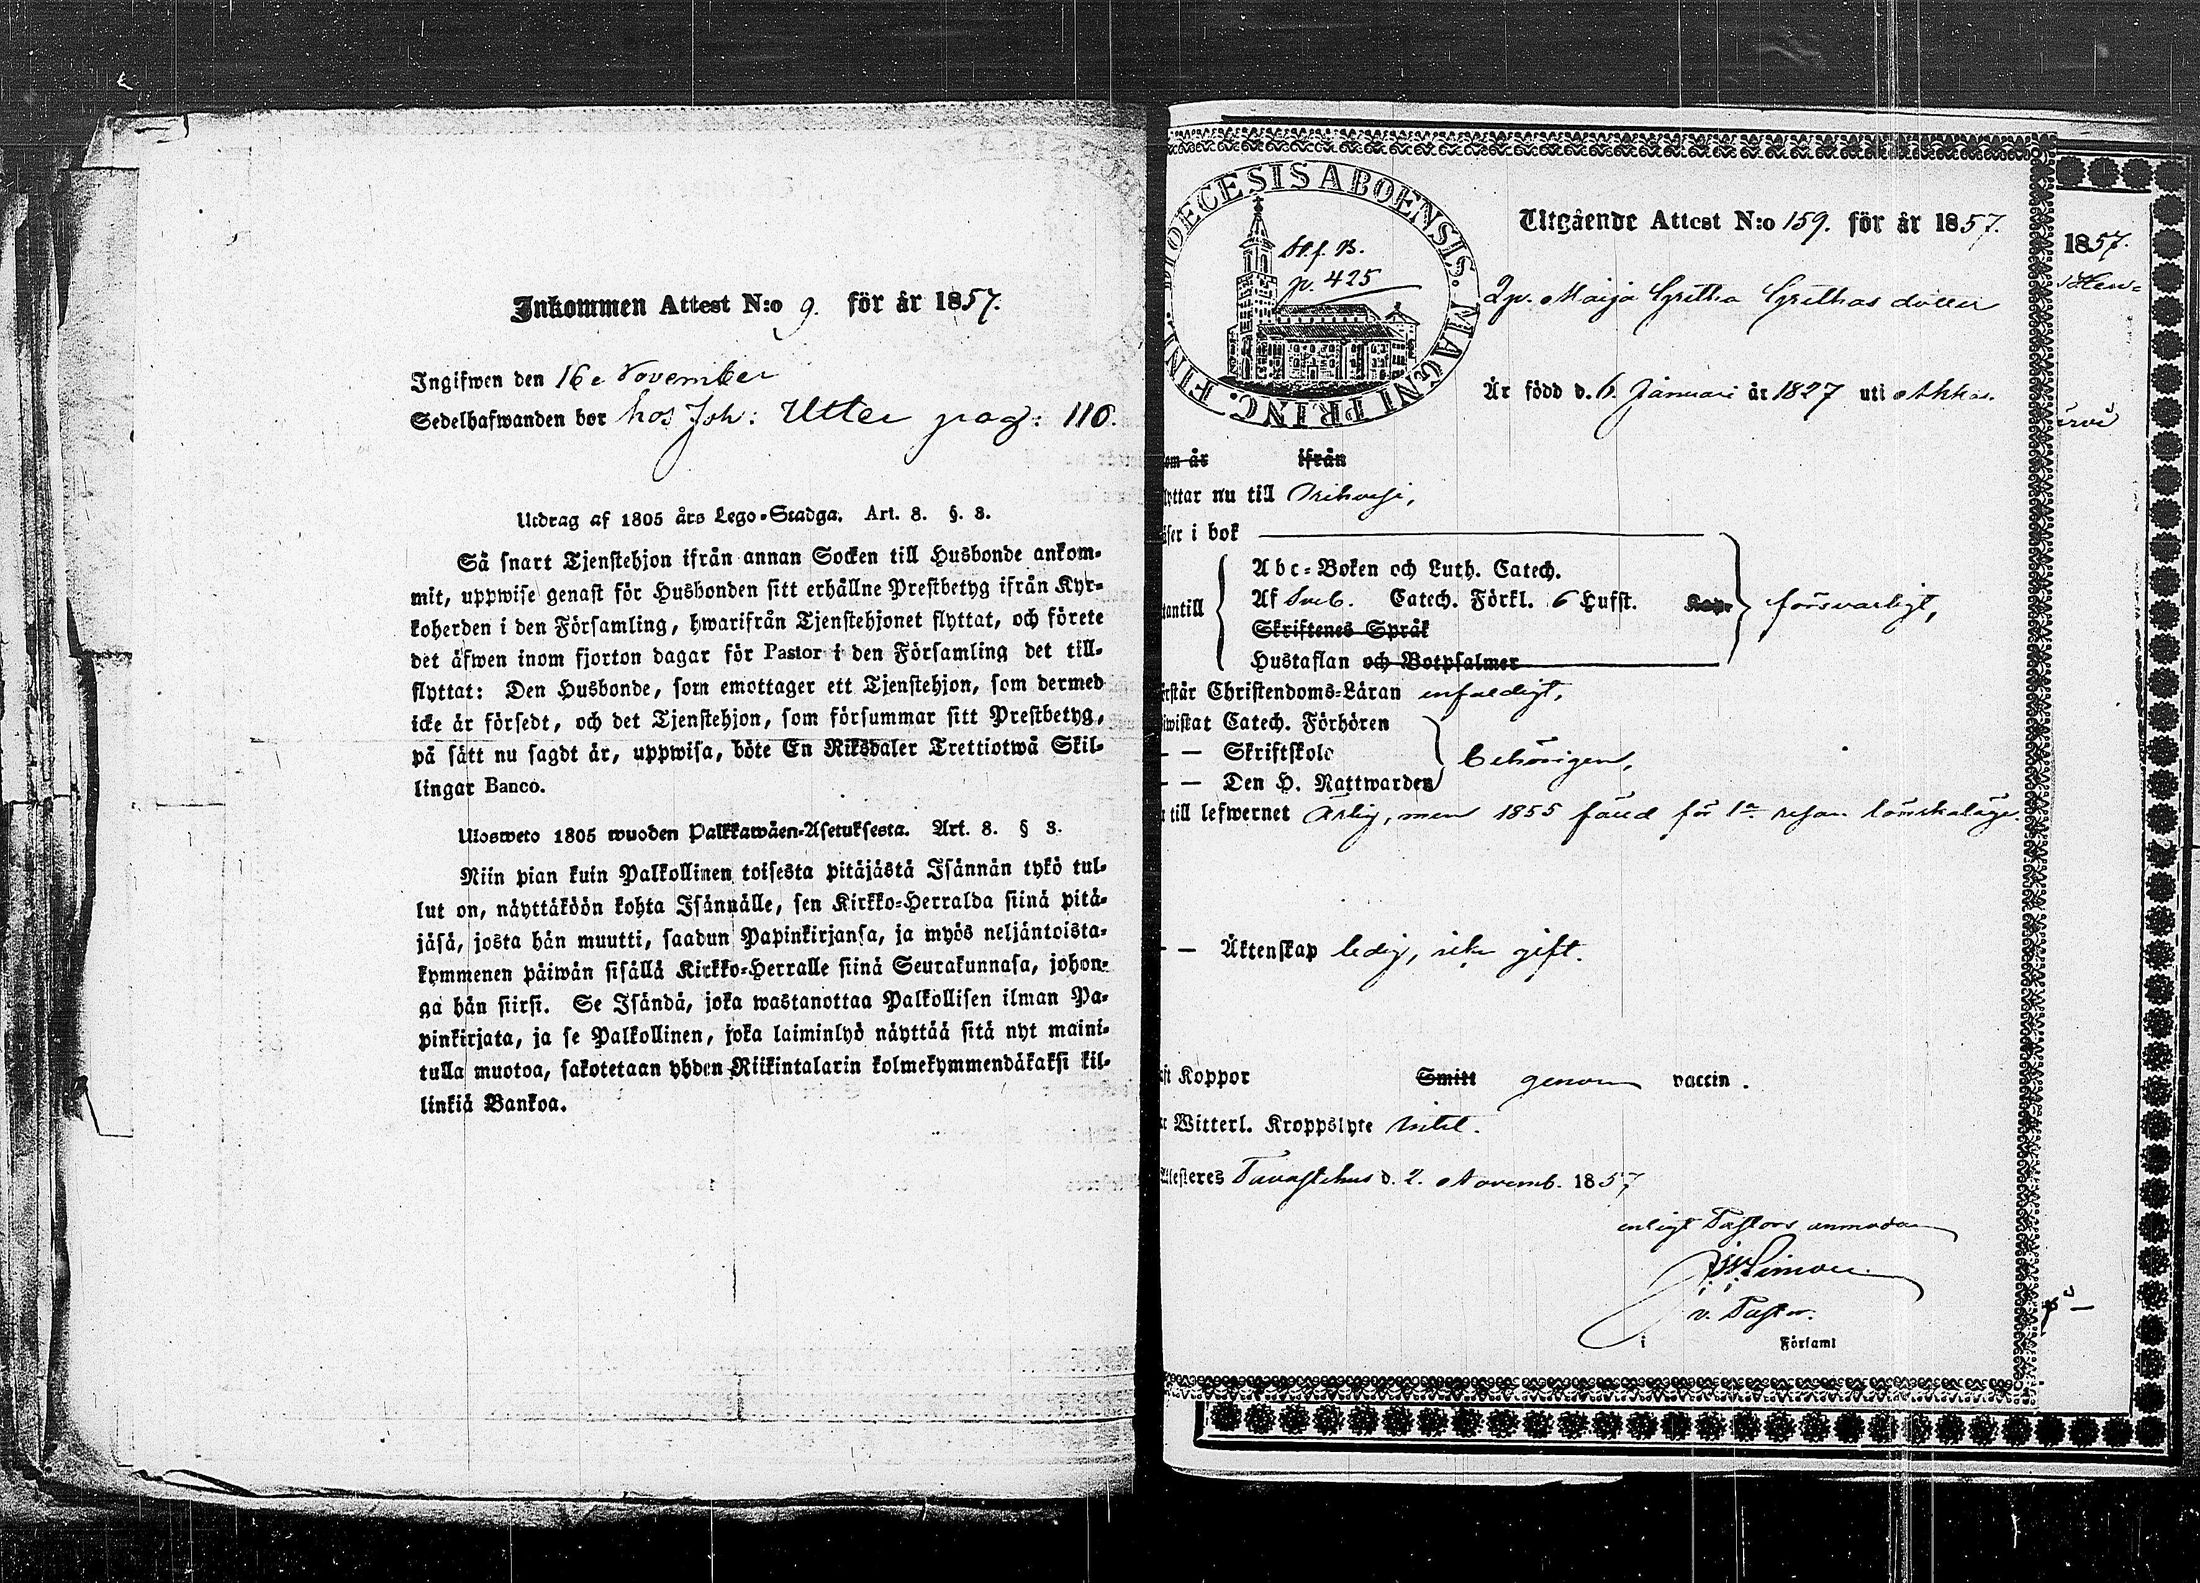 Inkommen Attest N:o 9. för år 1857.
Ingifwen den 16e November
Sedelhafwanden bor hos Joh: Utter pag: 110.
Utdrag af 1805 års Lego-Stadga. Art. 8. §. 3.
Så snart Tjenstehjon ifrån annan Socken till Husbonde ankom-
mit, uppwise genast för Husbonden sitt erhållne Prestbetyg ifrån Kyr-
koherden i den Församling, hwarifrån Tjenstehjonet flyttat, och förete
det äfwen inom fjorton dagar för Pastor i den Församling det till-
flyttat: Den Husbonde, som emottager ett Tjenstehjon, som dermed
icke är försedt, och det Tjenstehjon, som försummar sitt Prestbetyg,
på sätt nu sagdt är, uppwisa, böte En Riksdaler Trettiotwå Skil-
lingar Banco.
Ulosweto 1805 wuoden Palkkawäen-Asetuksesta. Art. 8. § 3.
Niin pian kuin Palkollinen toisesta pitäjästä Isännän tykö tul-
lut on, näyttäköön kohta Isännälle, sen Kirkko-Herralda siinä pitä-
jäsä, josta hän muutti, saadun Papinkirjansa, ja myös neljäntoista-
kymmenen päiwän sisällä Kirkko-Herralle siinä Seurakunnasa, johon-
ga hän siirsi. Se Isändä, joka wastanottaa Palkollisen ilman Pa-
pinkirjata, ja se Palkollinen, joka laiminlyö näyttää sitä nyt maini-
tulla muotoa, sakotetaan yhden Riikintalarin kolmekymmendäkaksi kil-
linkiä Bankoa.
DIOECESIS ABOENSIS. MAGNI PRINC. FINL.
p. 425
Utgående Attest N:o 159. för år 1857.
1857.
Qp. Maija Gretha Grethas dotter
Är född d. 6. Januari år 1827 uti Akkas.
om år ifrån
yttar nu till
äser i bok
antill
Abc-Boken och Luth. Catech.
Af Sveb. Catech. Förkl. 6 Hufst. Kap. försvarligt,
Skriftenes Språk
Hustaflan och Botpsalmer
rstår Christendoms-Läran enfaldigt,
iwistat Catech. Förhören
— — Skriftskole behörigen,
— — Den H. Nattwarden
till lefwernet Ärlig, men 1855 fäld för 1a resan lönskaläge.
— — Äktenskap ledig, icke gift.
ft Koppor Smitt genom vaccin.
Witterl. Kroppslyte intet.
Attesteres Tavastehus d. 2. Novemb. 1857
enligt Pastors anmodan
v. Pastor.
i Församl